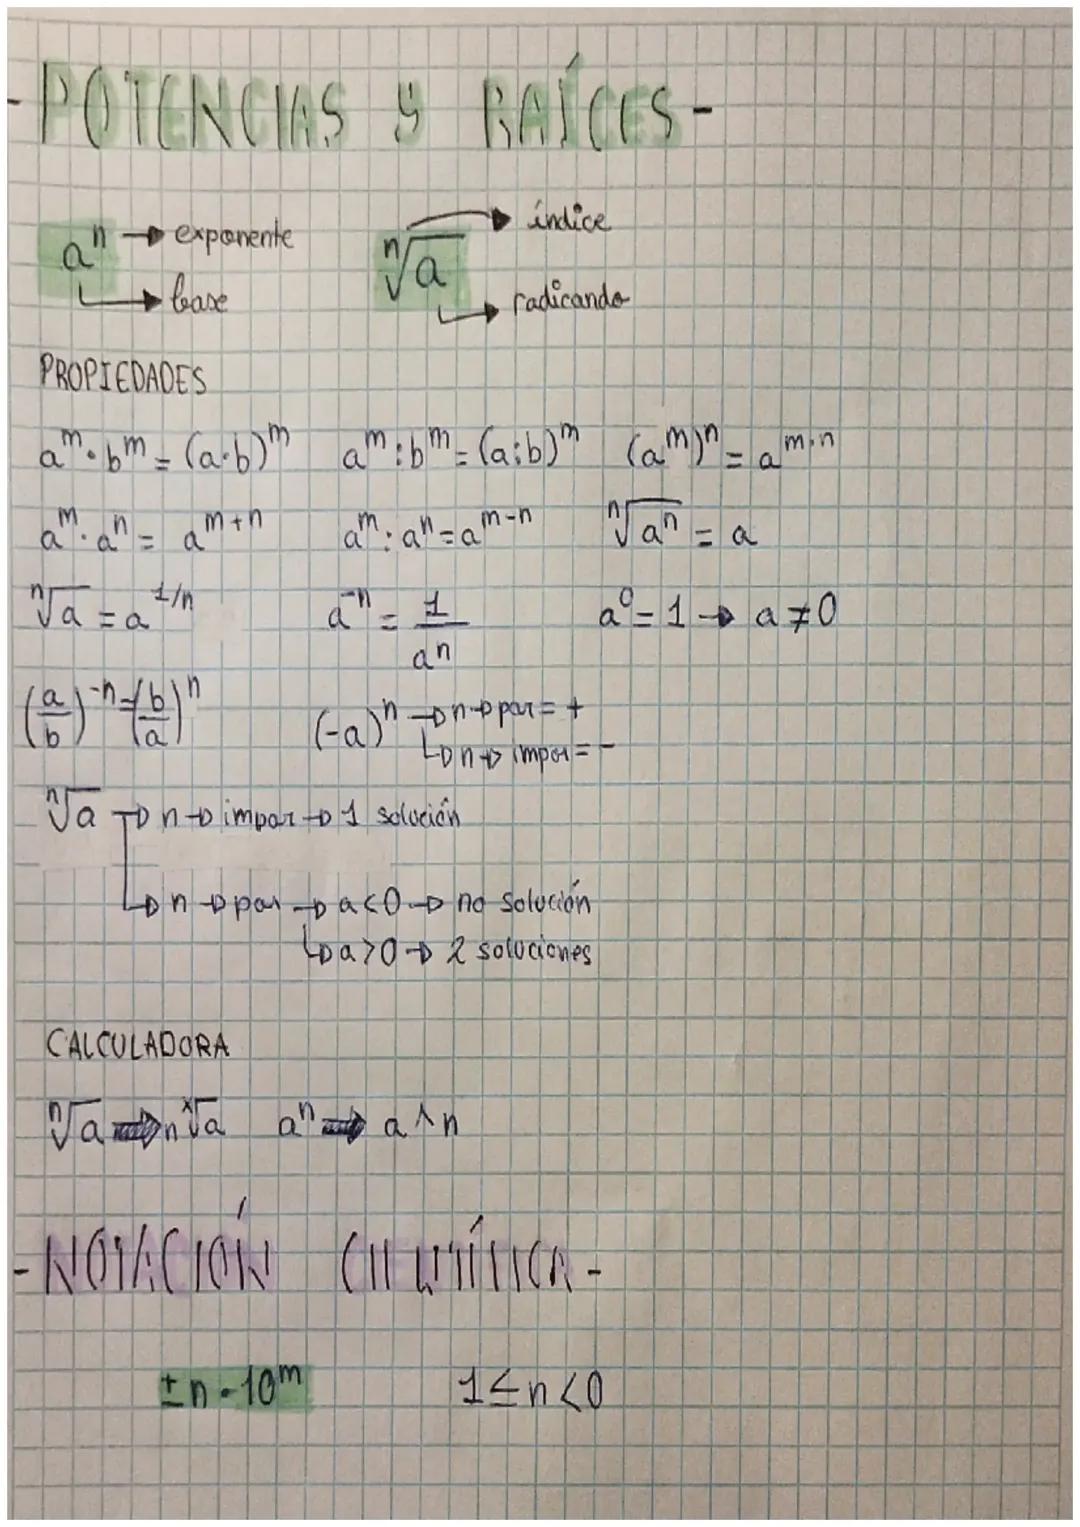 -POTENCIAS Y RAÍCES-
aⁿ → exponente
→ base
ⁿ√a → índice
→ radicando
PROPIEDADES
aᵐ·bᵐ = (a·b)ᵐ aᵐ:bᵐ = (a:b)ᵐ (aᵐ)ⁿ = aᵐ·ⁿ
aᵐ·aⁿ = aᵐ⁺ⁿ aᵐ:aⁿ = aᵐ⁻ⁿ ⁿ√aⁿ = a
ⁿ√a = a^1/n a⁻ⁿ = 1/aⁿ a⁰ = 1 → a ≠ 0
(a/b)⁻ⁿ = (b/a)ⁿ (-a)ⁿ → n → par = +
→ n → impar = -
ⁿ√a → n → impar → 1 solución
→ n → par → a<0 → no solución
→ a>0 → 2 soluciones
CALCULADORA
ⁿ√a ⇒ n ˣ√a aⁿ ⇒ a ^ n
-NOTACIÓN CIENTÍFICA-
±n·10ᵐ 1≤n<0